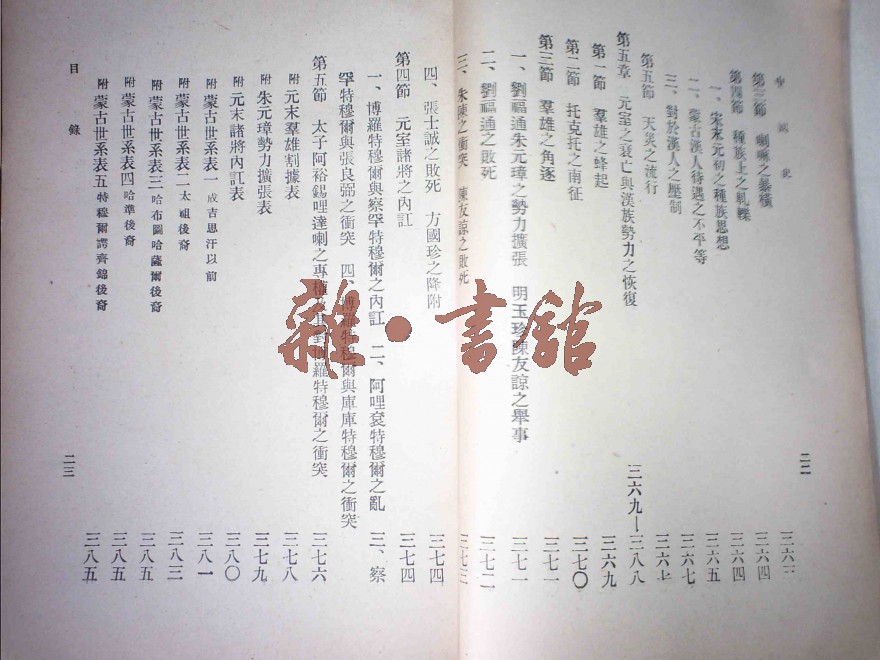 第三節 喇嘛之暴橫 三六三
第四節 種族上之軋轢 三六四
一、宋末元初之種族思想 三六四
二、蒙古漢人待遇之不平等 三六五
三、對於漢人之壓制 三六七
第五節 天災之流行 三六七
第五章 元室之衰亡與漢族勢力之恢復 三六九—三八八
第一節 羣雄之蜂起 三六九
第二節 托克托之南征 三七〇
第三節 羣雄之角逐 三七一
一、劉福通朱元璋之勢力擴張 明玉珍陳友諒之舉事 三七一
二、劉福通之敗死 三七二
二二
三、朱陳之衝突 陳友諒之敗死 三七三
四、張士誠之敗死 方國珍之降附 三七四
第四節 元室諸將之內訌 三七四
一、博羅特穆爾與察罕特穆爾之內訌 二、阿哩袞特穆爾之亂 三、察
罕特穆爾與張良弼之衝突 四、博羅特穆爾與庫庫特穆爾之衝突
第五節 太子阿裕錫哩達喇之專權及其對博羅特穆爾之衝突 三七六
附 元末羣雄割據表 三七八
附 朱元璋勢力擴張表 三七九
附 元末諸將內訌表 三八〇
附 蒙古世系表一 成吉思汗以前 三八一
附 蒙古世系表二 太祖後裔 三八三
附 蒙古世系表三 哈布圖哈薩爾後裔 三八五
附 蒙古世系表四 哈準後裔 三八五
附 蒙古世系表五 特穆爾諤齊錦後裔 三八五
目錄
二三
雜·書館